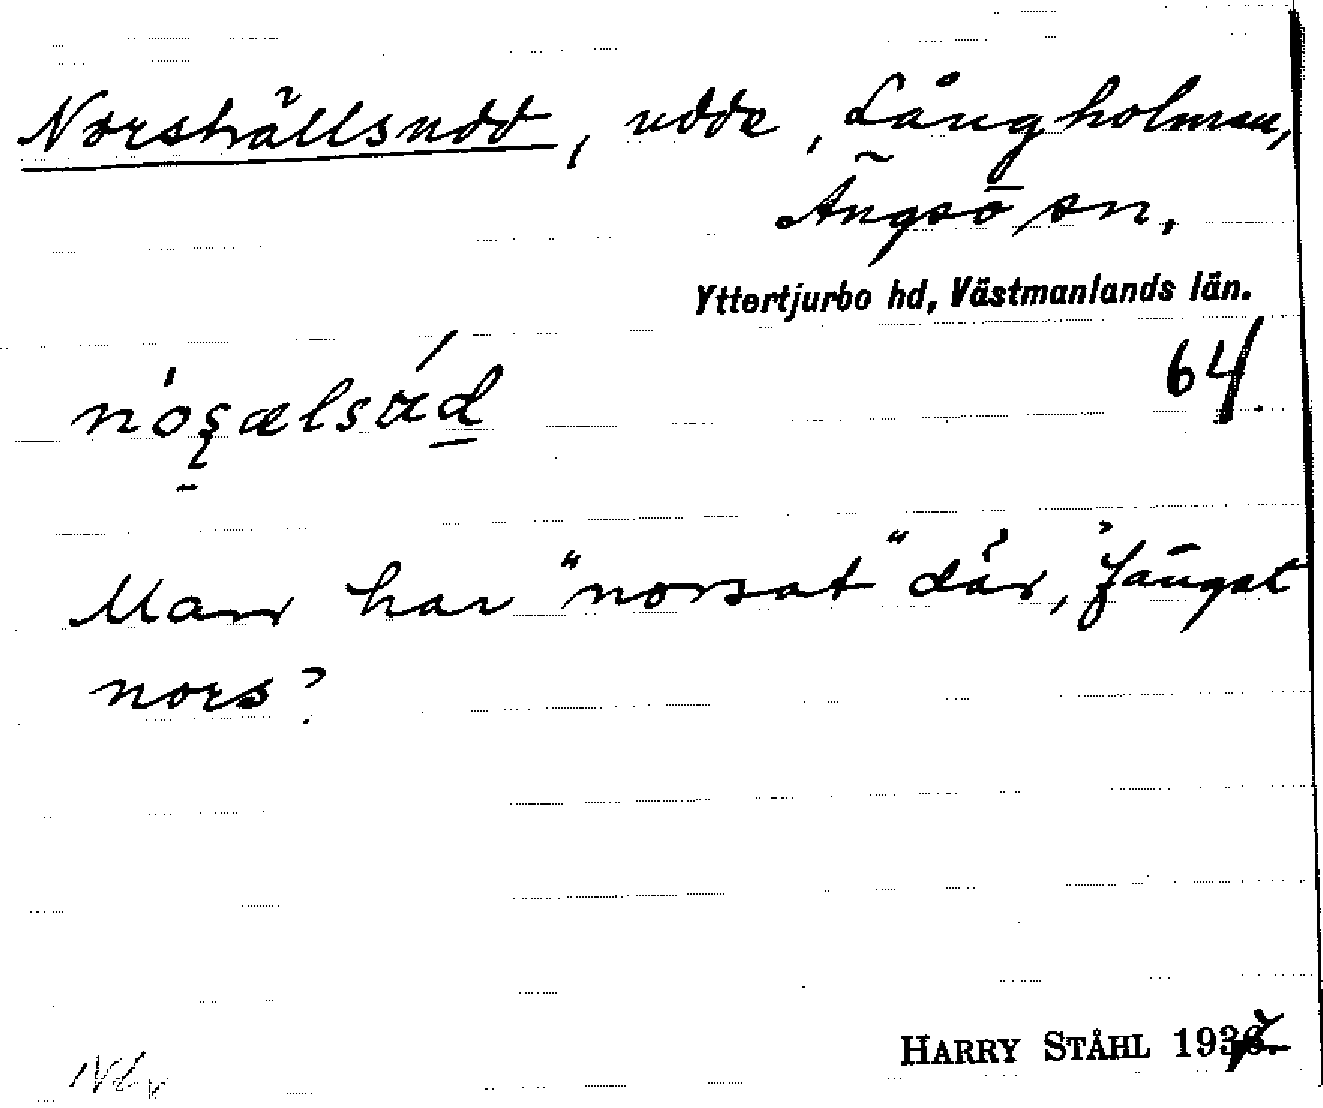 Norshällsudd, udde, Långholmen,
Ängsö sn.
Yttertjurbo hd, Västmanlands län.
64.
Man har "norsat" där, fångat
nors?
HARRY STÅHL 1937.